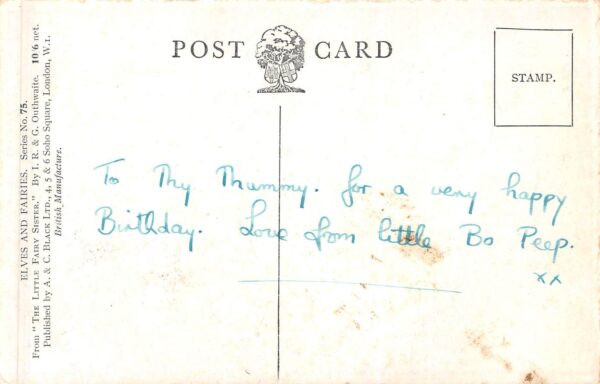 POST CARD
STAMP.
To Thy Thummy. for a very happy
Birthday. Love from little Bo Peep.
xx
ELVES AND FAIRIES. Series No. 75.
From "THE LITTLE FAIRY SISTER." By I. R. & G. Outhwaite. 10/6 net.
Published by A. & C. BLACK LTD., 4, 5 & 6 Soho Square, London, W.1.
British Manufacture.